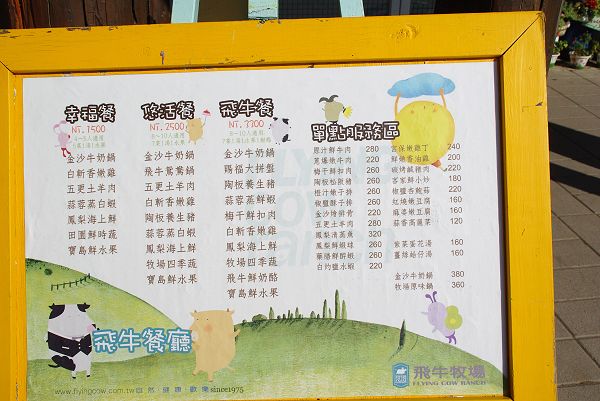 幸福餐
NT.1500
金沙牛奶鍋
白斬香嫩雞
五更土羊肉
蒜蓉蒸白蝦
鳳梨海上鮮
田園鮮時蔬
寶島鮮水果
悠活餐
NT.2500
金沙牛奶鍋
飛牛鴛鴦鍋
五更土羊肉
白斬香嫩雞
陶板養生豬
蒜蓉蒸白蝦
鳳梨海上鮮
牧場四季蔬
寶島鮮水果
飛牛餐
NT.3300
金沙牛奶鍋
賜福大拼盤
陶板養生豬
蒜蓉蒸鮮蝦
梅干鮮扣肉
白斬香嫩雞
鳳梨海上鮮
牧場四季蔬
飛牛鮮奶酪
寶島鮮水果
單點服務區
蔥爆嫩牛肉 220
梅干鮮扣肉 260
陶板松阪豬 260
橙汁嫩子排 260
椒鹽酥子排 260
金沙燴排骨 220
五更土羊肉 280
鳳梨清蒸魚 320
鳳梨鮮蝦球 260
藥膳鮮醉蝦 260
白灼鹽水蝦 220
宮保嫩雞丁 240
鮮嫩香油雞 200
碳烤鹹豬肉 220
客家鮮小炒 180
椒鹽杏鮑菇 220
紅燒嫩豆腐 160
麻婆嫩豆腐 160
蒜香高麗菜 160
紫菜蛋花湯 160
薑絲蛤仔湯 160
金沙牛奶鍋 380
牧場原味鍋 360
飛牛餐廳
www.flyingcow.com.tw自然·健康·歡樂since1975
飛牛牧場
FLYING COW RANCH